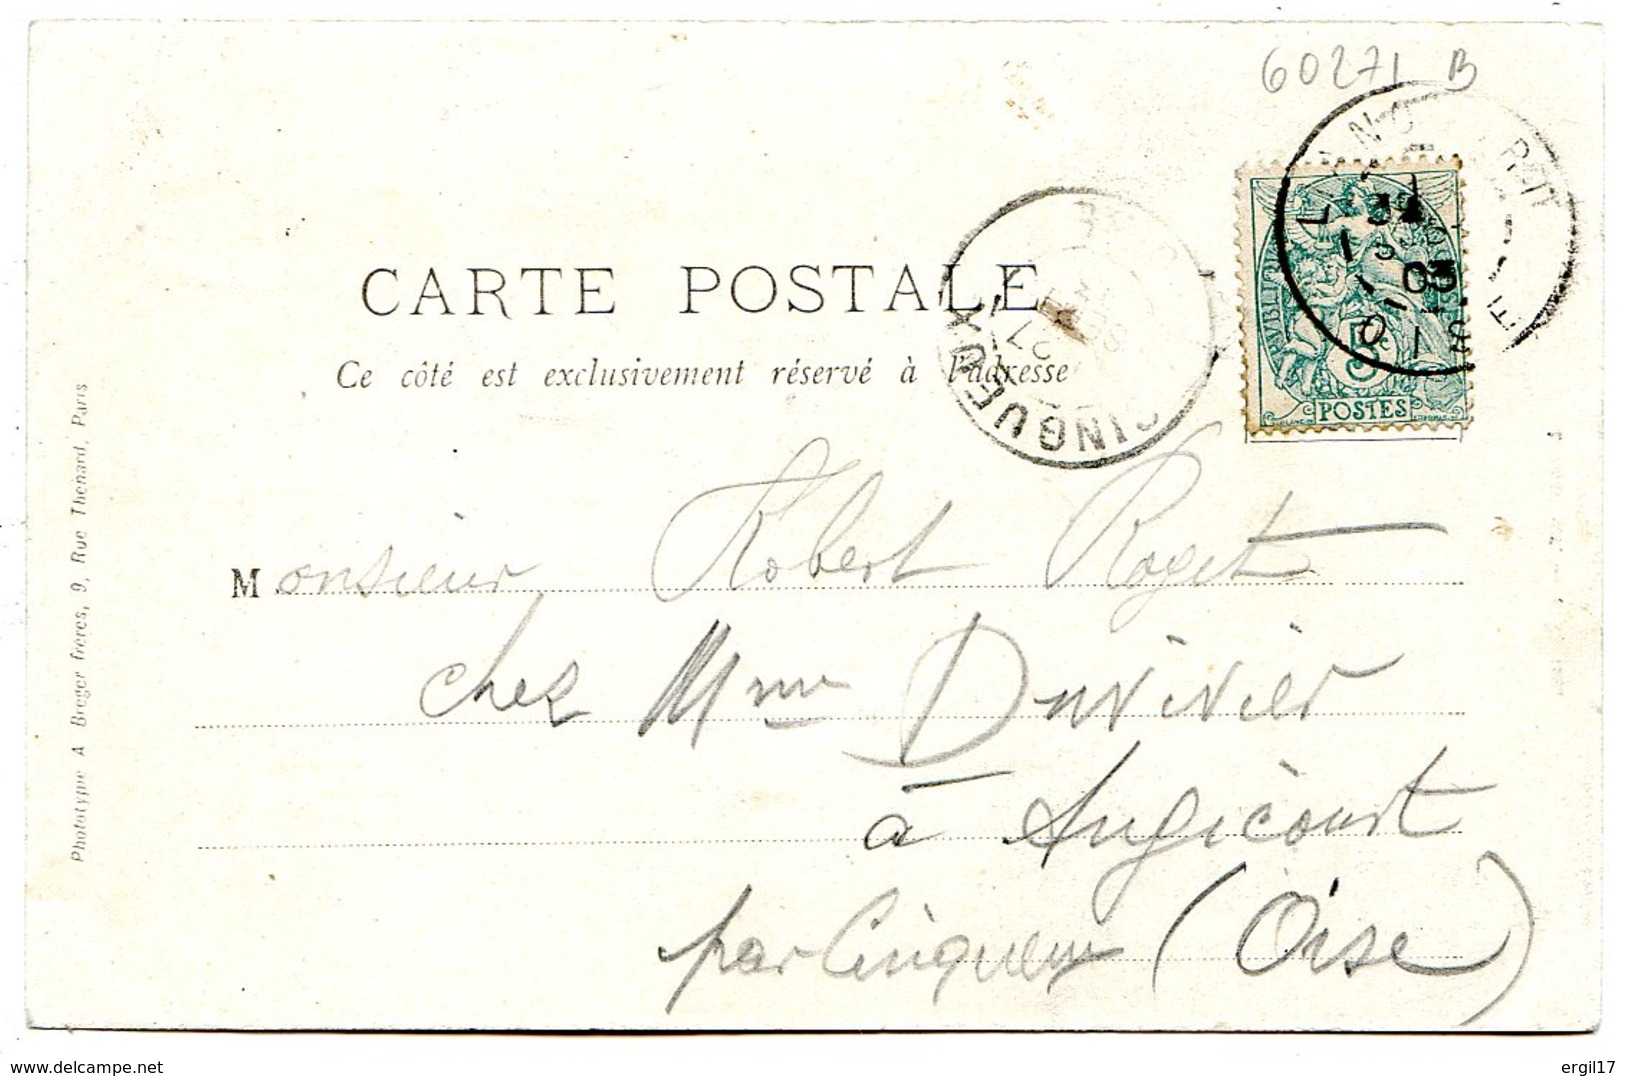 60271 B
CARTE POSTALE
Ce côté est exclusivement réservé à l'adresse
CINQUEUX
21
03
5c
POSTES
Monsieur Robert Roget
chez Mme Duvivier
à Angicourt
par Cinqueux (Oise)
Phototypie A Breger frères, 9, Rue Thénard, Paris
ergil17